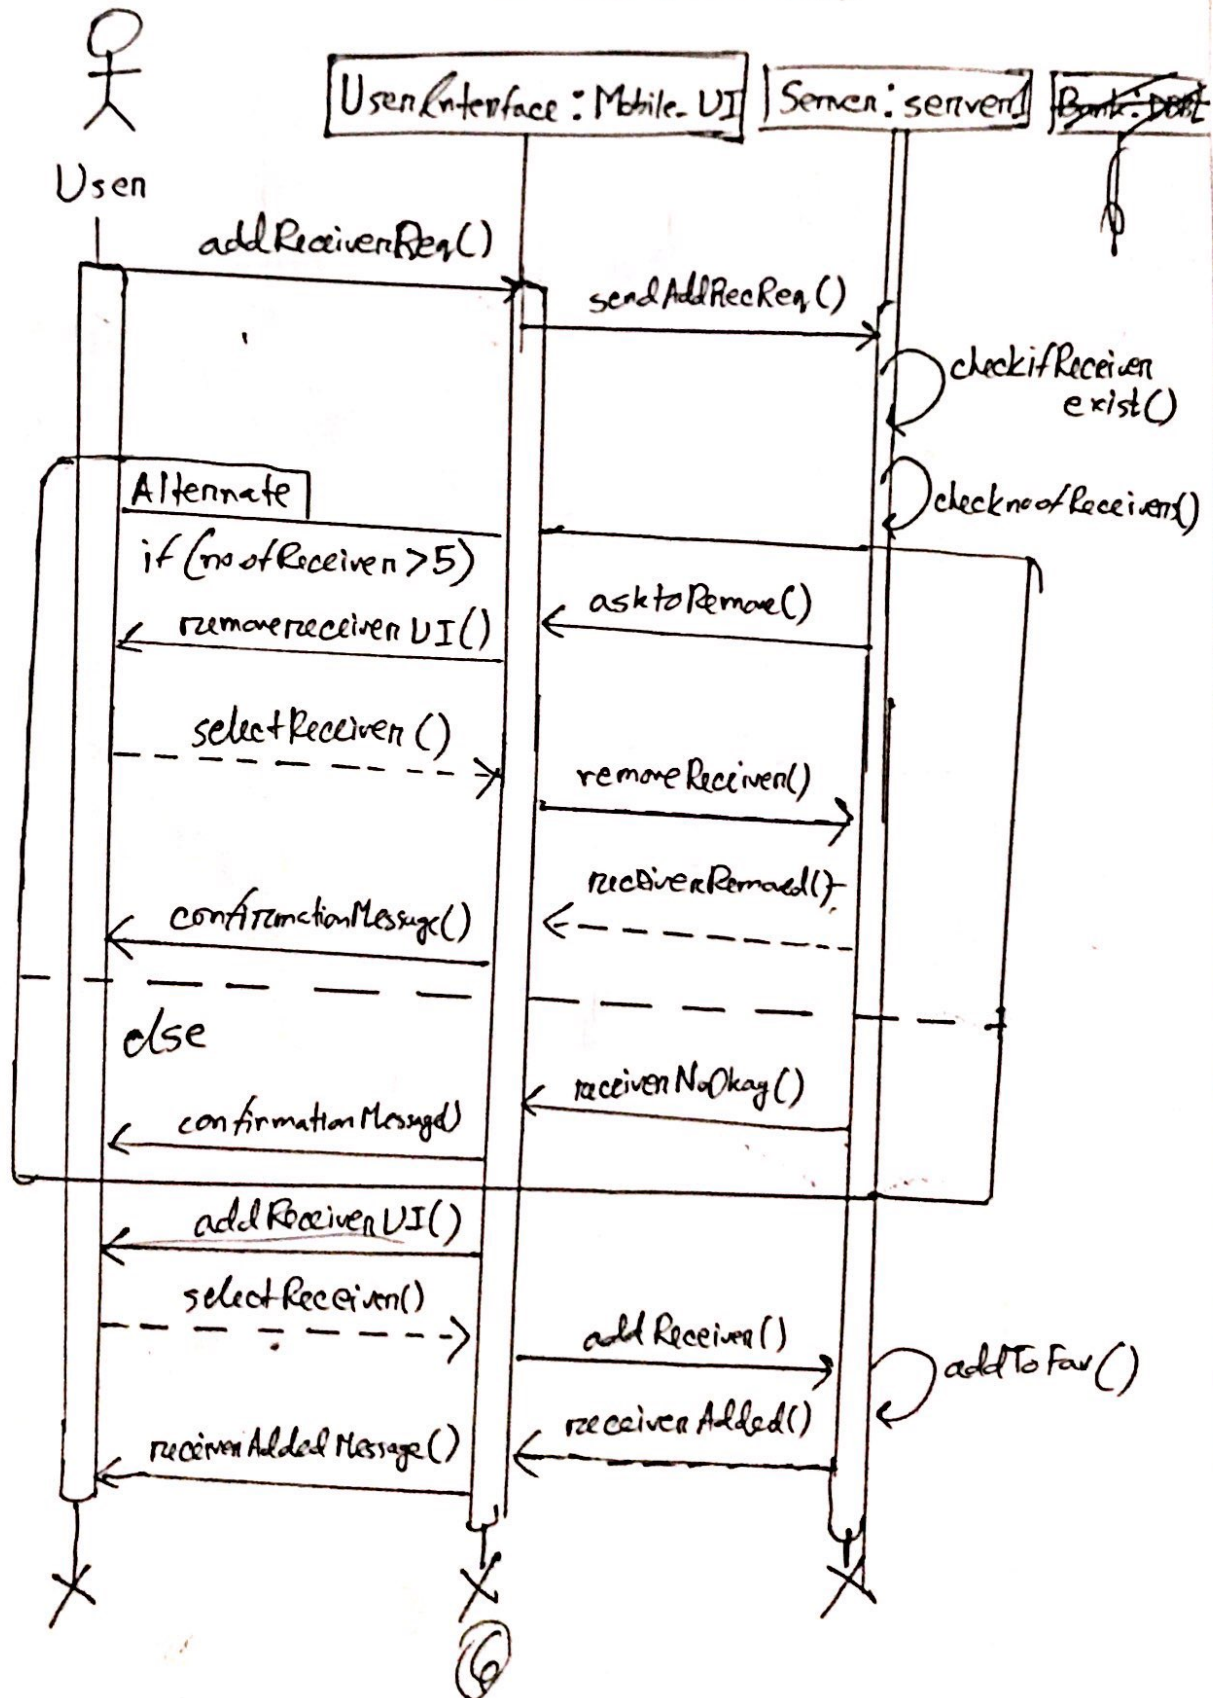 UserInterface: Mobile-UI
Server: server1
User
addReceiverReq()
sendAddRecReq()
checkifReceiver
exist()
checknoofReceivers()
Alternate
if (noofReceiver>5)
asktoRemove()
removereceiverUI()
selectReceiver()
removeReceiver()
receiverRemoved()
confirmationMessage()
else
receiverNoOkay()
confirmationMessage()
addReceiverUI()
selectReceiver()
addReceiver()
addToFav()
receiverAdded()
receiverAddedMessage()
6